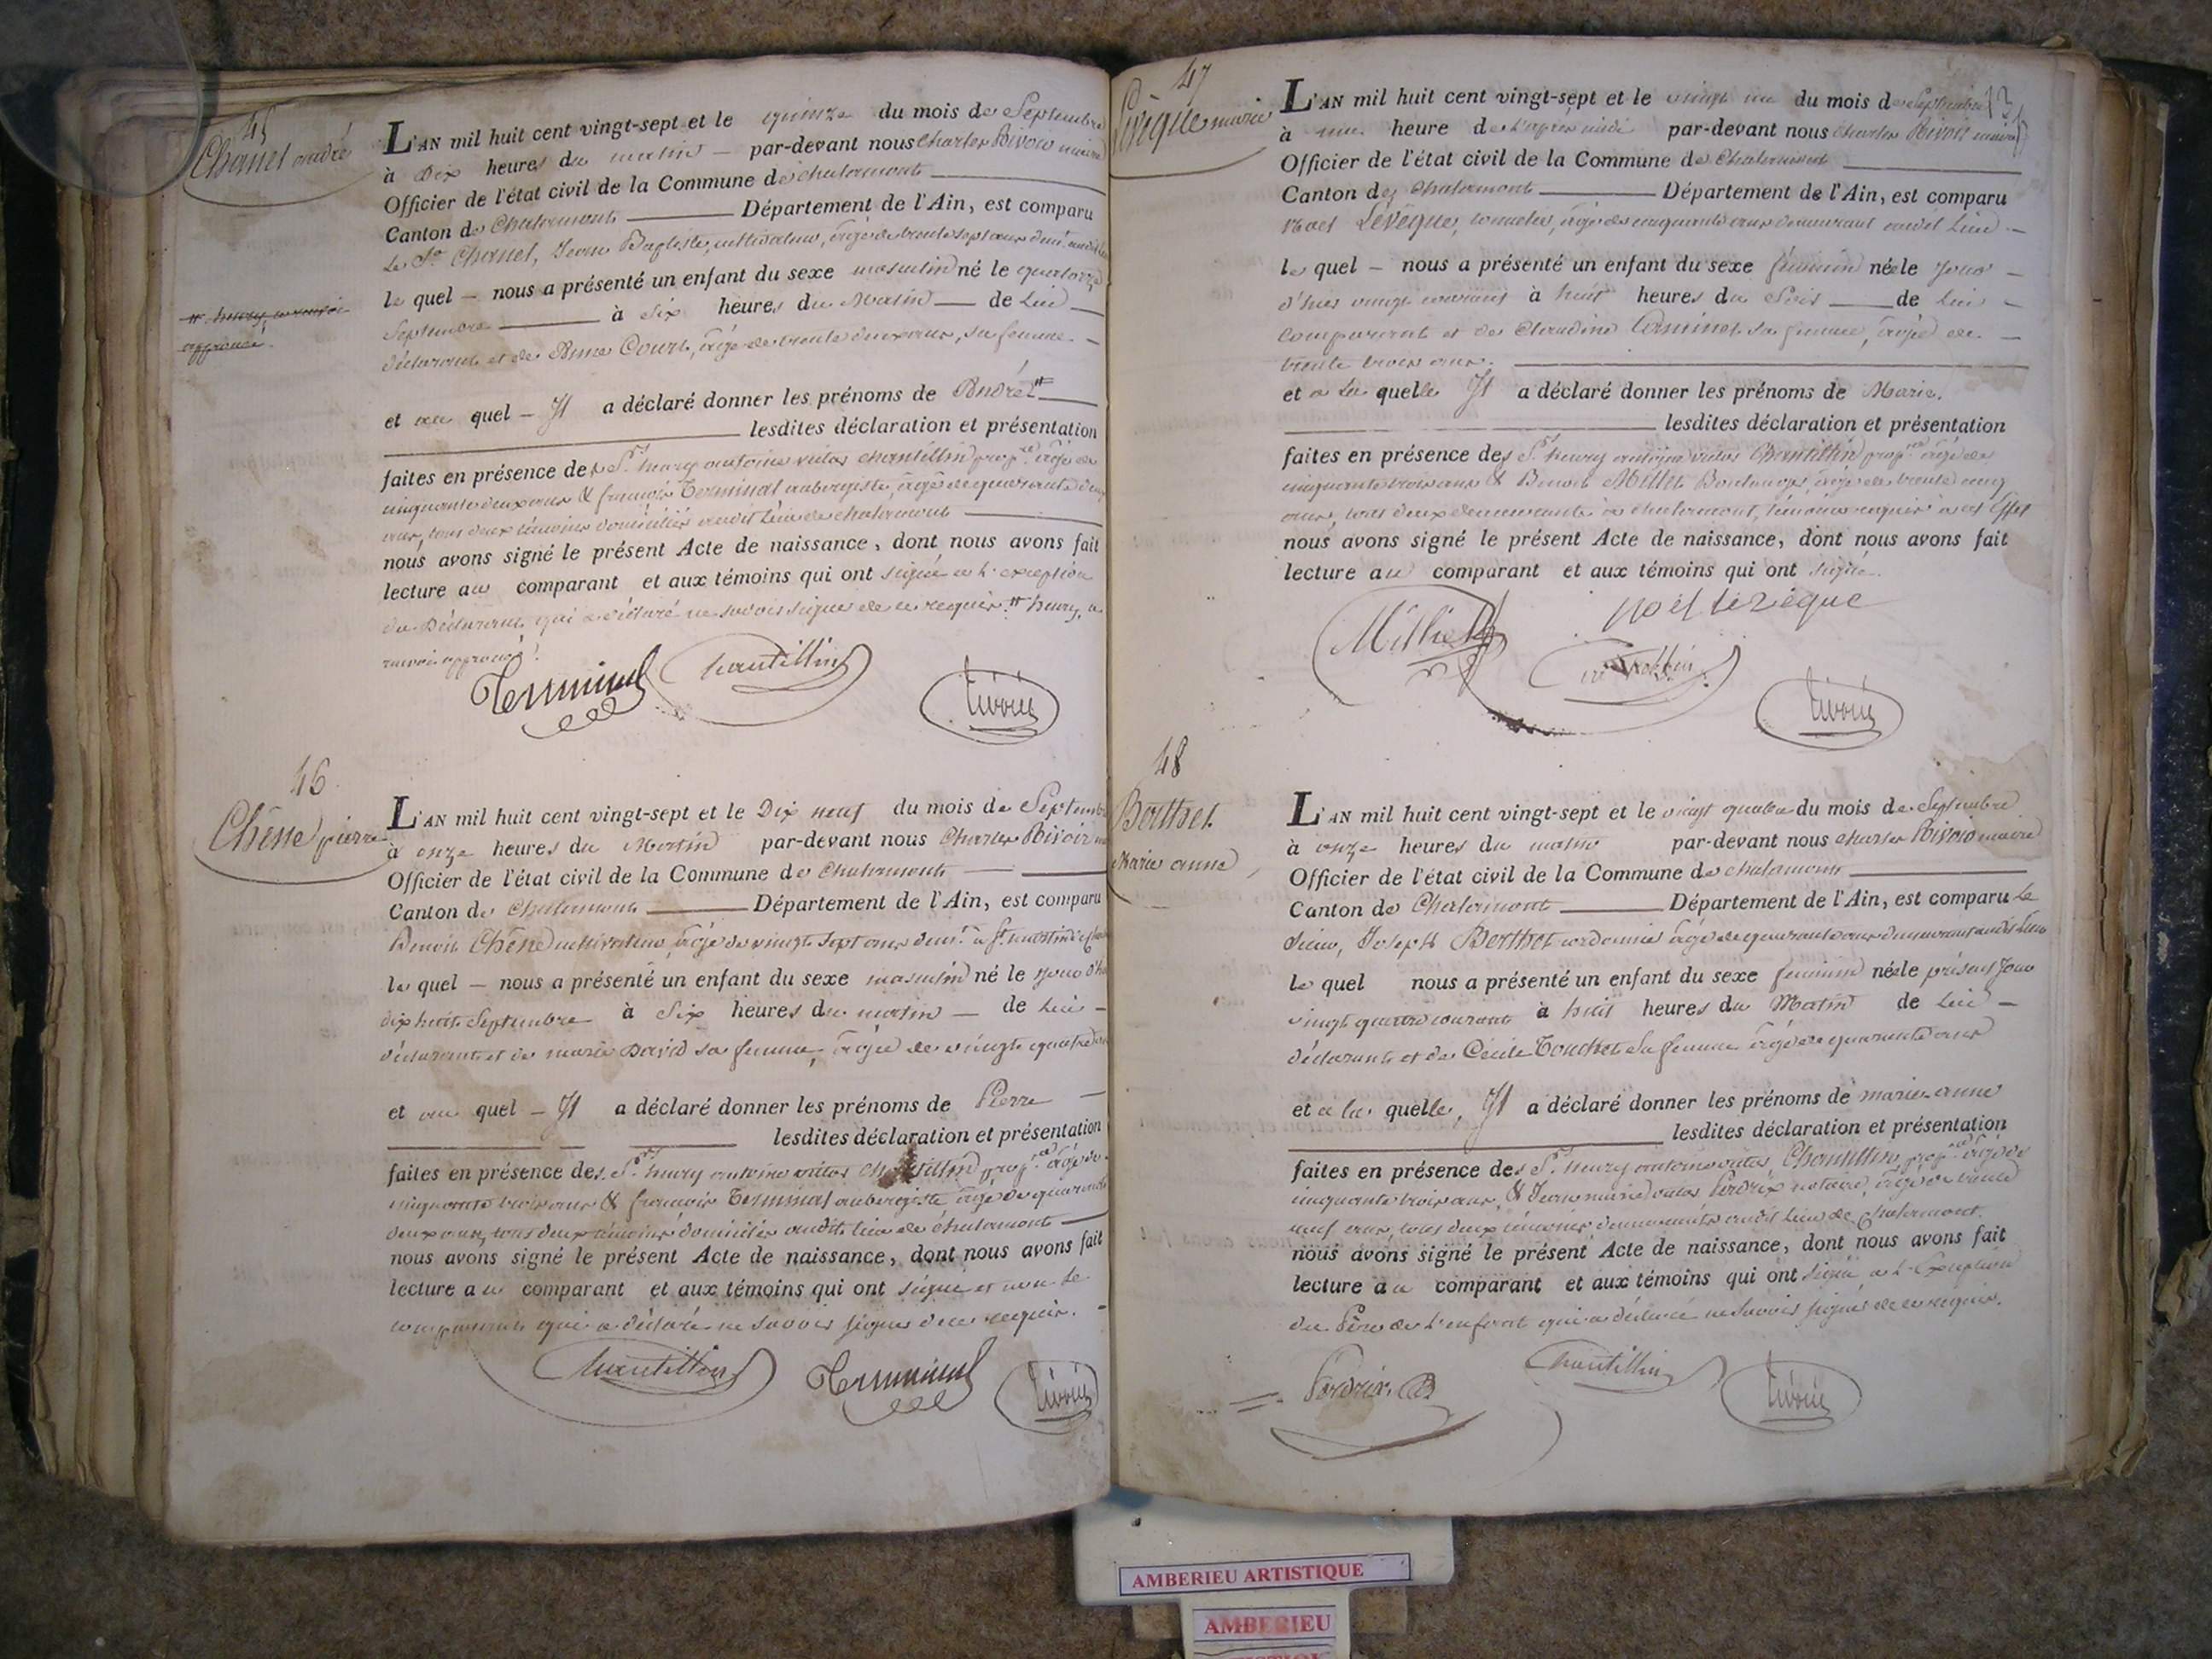 45
Chanel andré
L'AN mil huit cent vingt-sept et le quinze du mois de Septembre
à Dix heures du matin — par-devant nous Charles Rivoir maire
Officier de l'état civil de la Commune de chalamont
Canton de Chalamont Département de l'Ain, est comparu
Le Sr Chanel, Jean Baptiste, cultivateur, âgé de trente sept ans demt audit lieu
le quel — nous a présenté un enfant du sexe masculin né le quatorze
Septembre à Six heures du Matin — de Lui
déclarant et de Anne Court, âgé de trente deux ans, sa femme
et au quel — Il a déclaré donner les prénoms de André
lesdites déclaration et présentation
faites en présence des Srs henry antoine victor chantillin propre âgé de
cinquante deux ans & françois Terminal aubergiste, âgé de quarante deux
ans, tous deux témoins domiciliés audit Lieu de chalamont
nous avons signé le présent Acte de naissance, dont nous avons fait
lecture au comparant et aux témoins qui ont signé à l'exception
du Déclarant qui a déclaré ne savoir signer de ce requis. # henry, a
renvoi approuvé.
# henry, a renvoi
approuvé.
Terminal chantillin Rivoir
46
Chêne pierre
L'AN mil huit cent vingt-sept et le Dix neuf du mois de Septembre
à onze heures du Matin par-devant nous Charles Rivoir
Officier de l'état civil de la Commune de Chalamont
Canton de Chalamont Département de l'Ain, est comparu
Benoit Chêne cultivateur, âgé de vingt sept ans demt à St martin
le quel — nous a présenté un enfant du sexe masculin né le jour d'hier
dix huit Septembre à Six heures du matin — de Lui —
déclarant et de marie David sa femme, âgée de vingt quatre
et au quel — Il a déclaré donner les prénoms de Pierre —
lesdites déclaration et présentation
faites en présence des Srs henry antoine victor chantillin propre âgé de
cinquante trois ans & françois Terminal aubergiste âgé de quarante
deux ans, tous deux témoins domiciliés audit lieu de chalamont
nous avons signé le présent Acte de naissance, dont nous avons fait
lecture au comparant et aux témoins qui ont signé et non le
comparant qui a déclaré ne savoir signer de ce requis.
chantillin Terminal Rivoir
47
Lévêque marie
L'AN mil huit cent vingt-sept et le vingt un du mois de Septembre
à une heure de l'après midi par-devant nous charles Rivoir maire
Officier de l'état civil de la Commune de Chalamont
Canton de Chalamont Département de l'Ain, est comparu
Noel Lévêque, âgé de cinquante ans demeurant audit Lieu —
le quel — nous a présenté un enfant du sexe féminin née le Jour —
d'hier vingt courant à huit heures du Soir de Lui —
comparant et de Claudine sa femme, âgée de —
trente trois ans.
et a la quelle Il a déclaré donner les prénoms de Marie.
lesdites déclaration et présentation
faites en présence des Srs henry antoine victor Chantillin propre âgé de
cinquante trois ans & Benoit Millet Boulanger, âgé de trente cinq
ans, tous deux demeurants à chalamont, témoins requis à cet Effet
nous avons signé le présent Acte de naissance, dont nous avons fait
lecture au comparant et aux témoins qui ont signé.
Millet noel levêque
chantillin Rivoir
48
Berthet
Marie anne
L'AN mil huit cent vingt-sept et le vingt quatre du mois de Septembre
à onze heures du matin par-devant nous charles Rivoir maire
Officier de l'état civil de la Commune de chalamont
Canton de Chalamont Département de l'Ain, est comparu Le
Sieur, Joseph Berthet cordonnier âgé de quarante ans demeurant audit Lieu
le quel nous a présenté un enfant du sexe féminin née le présent Jour
vingt quatre courant à huit heures du Matin de Lui —
déclarant et de Cécile Touchet Sa femme âgé de quarante ans
et a la quelle, Il a déclaré donner les prénoms de marie-anne
lesdites déclaration et présentation
faites en présence des Srs henry antoine victor Chantillin propre âgé de
cinquante trois ans, & Jean marie victor Perdrix notaire, âgé de trente
neuf ans, tous deux témoins demeurants audit lieu de Chalamont.
nous avons signé le présent Acte de naissance, dont nous avons fait
lecture au comparant et aux témoins qui ont signé à l'Exception
du Père de l'enfant qui a déclaré ne Savoir signer de ce requis.
Perdrix chantillin Rivoir
AMBERIEU ARTISTIQUE
AMBERIEU